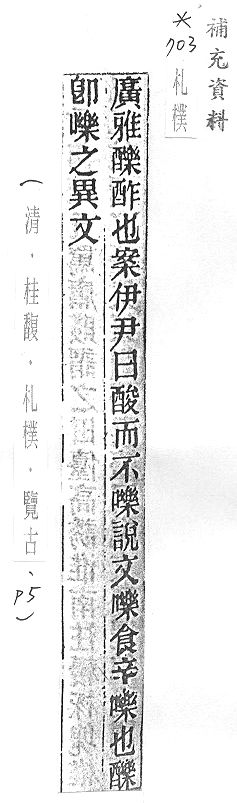 補充資料
*
703
札樸
廣雅䤕酢也案伊尹曰酸而不嚛說文嚛食辛嚛也䤕
卽嚛之異文
(清.桂馥.札樸.覽古、p5)